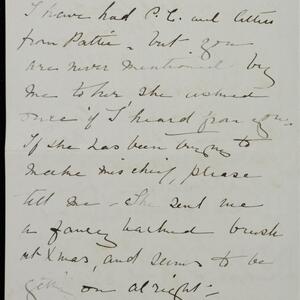 I have had P.C. and letters
from Pattie - but you
are never mentioned by
me to her she asked
once if I heard from you.
If she has been trying to
make mischief, please
tell me - She sent me
a fancy backed brush
at Xmas, and seems to be
getting on alright -